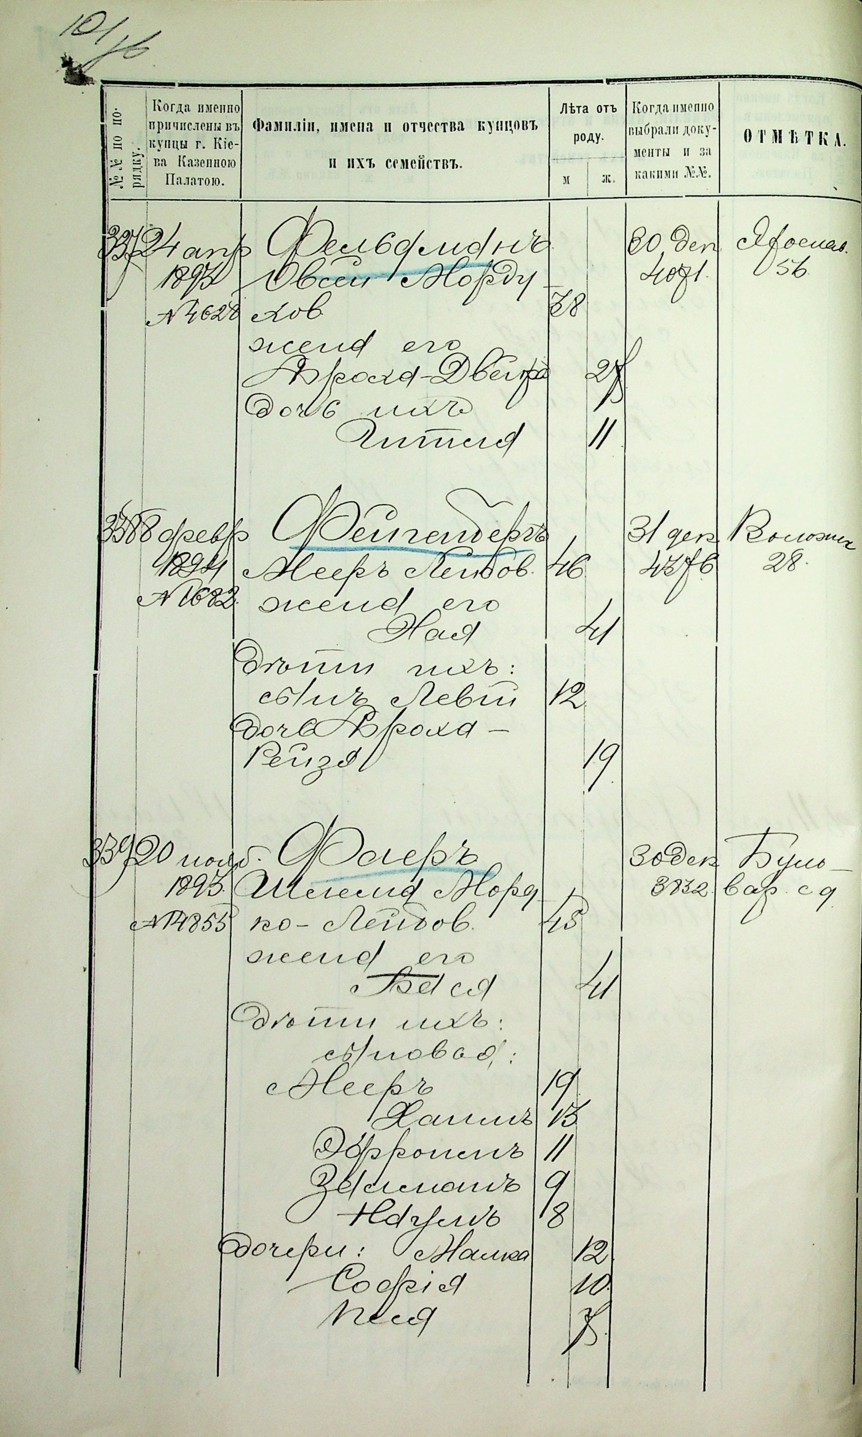 №№ по порядку.
Когда именно причислены въ купцы г. Кіева Казенною Палатою.
Фамиліи, имена и отчества купцовъ и ихъ семействъ.
Лѣта отъ роду.
м ж.
Когда именно выбрали документы и за какими №№.
ОТМѢТКА.
337 24 апр Фельдманъ 30 дек Ярослав.
1893 Овсей Морду- 4071. 56
№4628 хов 38
жена его
Броха-Двейра 27
дочь ихъ
Гитля 11
338 8 февр Фейгенбергъ 31 дек
1894 Мееръ Лейбов. 46 4376 28.
№1682 жена его
Хая 41
Дѣти ихъ:
сынъ Левій 12
дочь Броха-
Рейзя 19
339 20 нояб. Фаеръ 30 дек Буль-
1893 Шлема Морд 3832 вар. с д
№14855 ко-Лейбов. 43
жена его
Бася 41
Дѣти ихъ:
сыновья:
Мееръ 19
Хаимъ 13
Эфроимъ 11
Залманъ 9
Наумъ 8
дочери: Малка 12
Софія 10
Песя 7